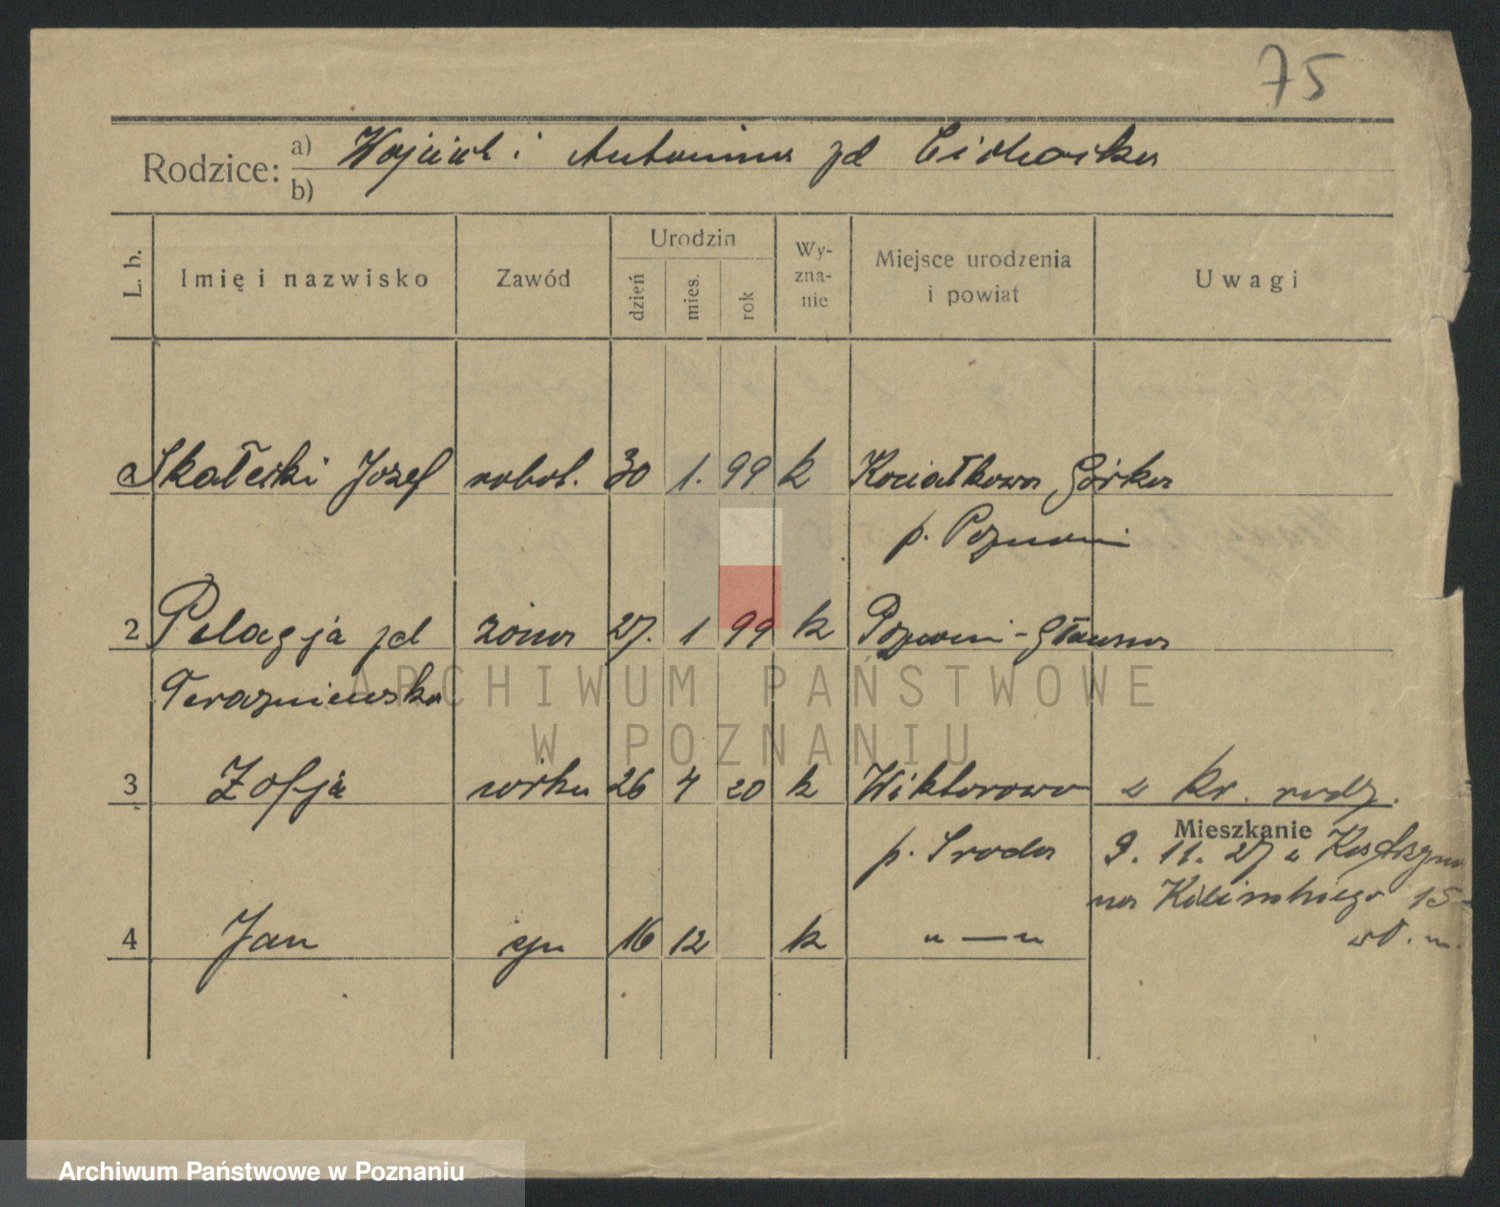 75
Rodzice: a) Wojciech i Antonina zd Cichocka
b)
L. b. Imię i nazwisko Zawód Urodzin dzień mies. rok Wy-zna-nie Miejsce urodzenia i powiat Uwagi
Skałecki Jozef robot. 30 1. 99 k Kociałkowa Górka
p. Poznań
2 Pelagja zd żona 27. 1 99 k Poznań-Główna
ARCHIWUM PAŃSTWOWE
W POZNANIU
3 Zofja córka 26 4 20 k Wiktorowo kr. rodz.
Mieszkanie
p. Sroda 9. 11. 27
na Kilińskiego 15
4 Jan syn 16 12 k " — "
Archiwum Państwowe w Poznaniu